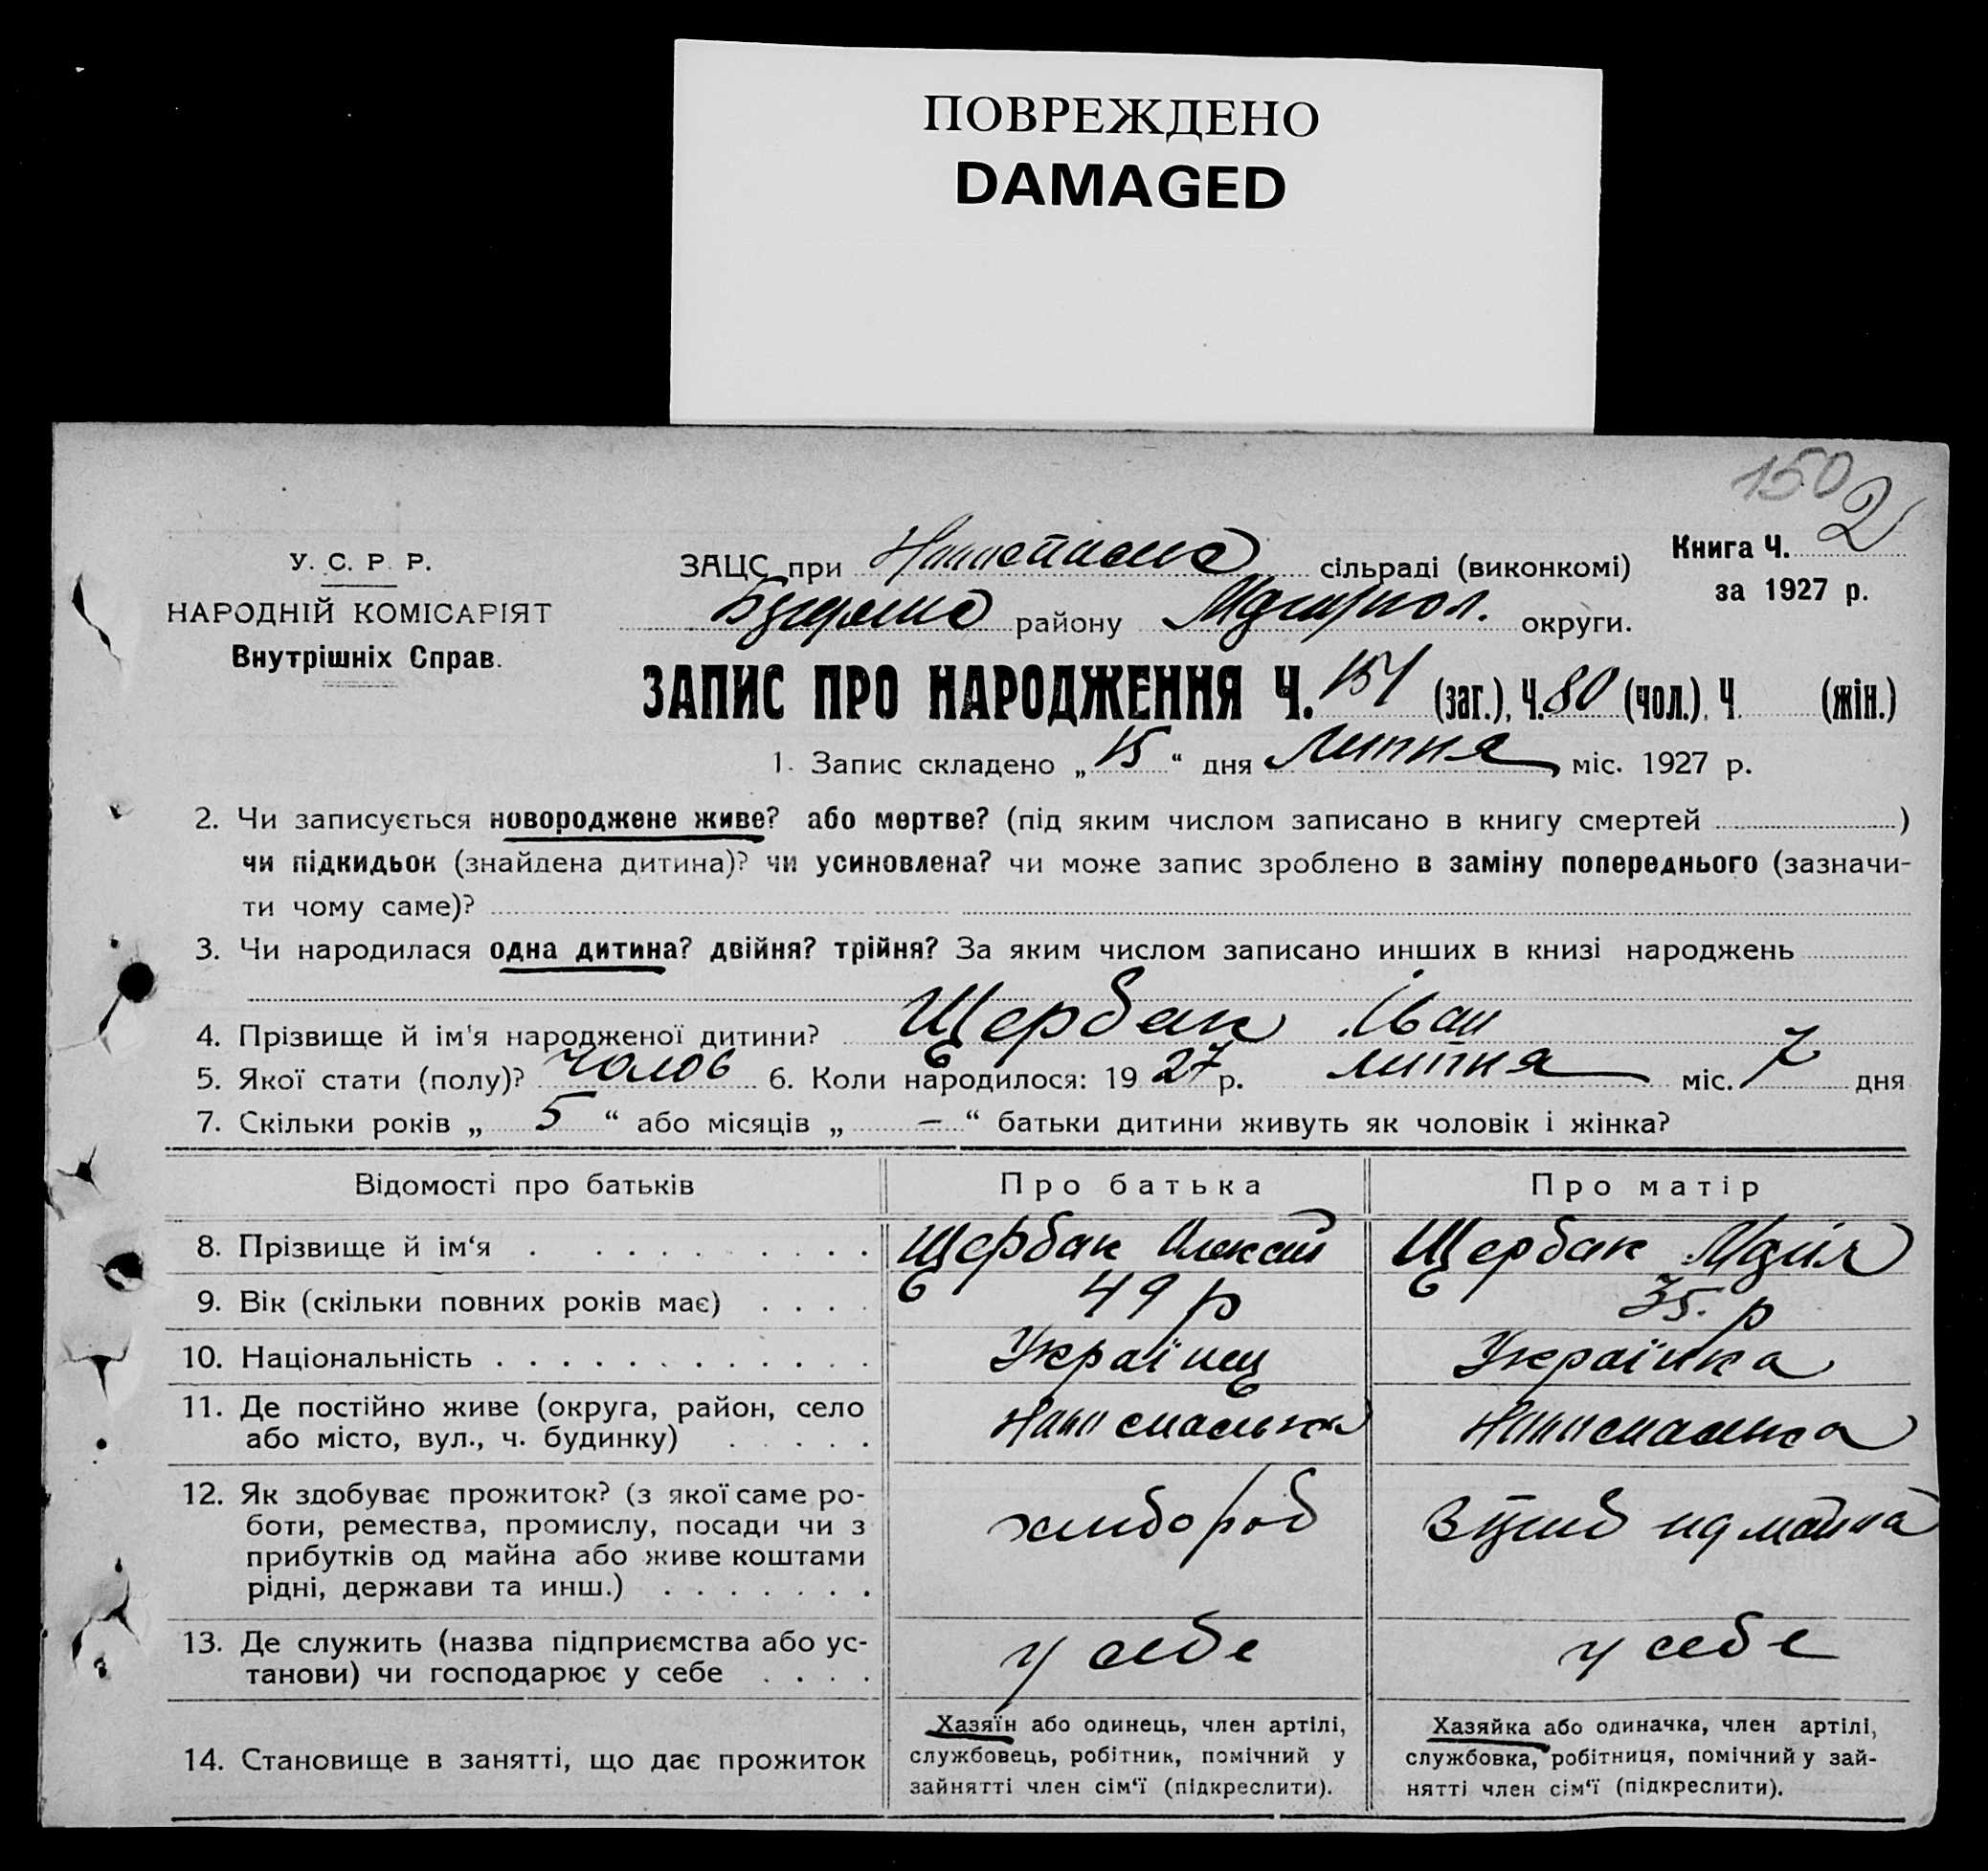 ПОВРЕЖДЕНО
DAMAGED
150
2
У. С. Р. Р.
НАРОДНІЙ КОМІСАРІЯТ
Внутрішніх Справ.
ЗАЦС при сільраді (виконкомі)
району Маріупол. округи.
Книга Ч.
за 1927 р.
ЗАПИС ПРО НАРОДЖЕННЯ Ч. 151 (заг.), Ч. 80 (чол.), Ч. (жін.)
1. Запис складено „ 15 “ дня Липня міс. 1927 р.
2. Чи записується новороджене живе? або мертве? (під яким числом записано в книгу смертей )
чи підкидьок (знайдена дитина)? чи усиновлена? чи може запис зроблено в заміну попереднього (зазначи-
ти чому саме)?
3. Чи народилася одна дитина? двійня? трійня? За яким числом записано инших в книзі народжень
4. Прізвище й ім'я народженої дитини? Щербак Іван
5. Якої стати (полу)? чолов 6. Коли народилося: 19 27 р. липня міс. 7 дня
7. Скільки років „ 5 “ або місяців „ – “ батьки дитини живуть як чоловік і жінка?
Відомості про батьків Про батька Про матір
8. Прізвище й ім‘я Щербак Олексій Щербак Марія
9. Вік (скільки повних років має) 49 р 35. р
10. Національність Українець Українка
11. Де постійно живе (округа, район, село
або місто, вул., ч. будинку)
12. Як здобуває прожиток? (з якої саме ро-
боти, ремества, промислу, посади чи з
прибутків од майна або живе коштами
рідні, держави та инш.) хлибороб
13. Де служить (назва підприємства або ус-
танови) чи господарює у себе у себе у себе
14. Становище в занятті, що дає прожиток
Хазяїн або одинець, член артілі,
службовець, робітник, помічний у
зайнятті член сім‘ї (підкреслити).
Хазяйка або одиначка, член артілі,
службовка, робітниця, помічний у зай-
нятті член сім‘ї (підкреслити).